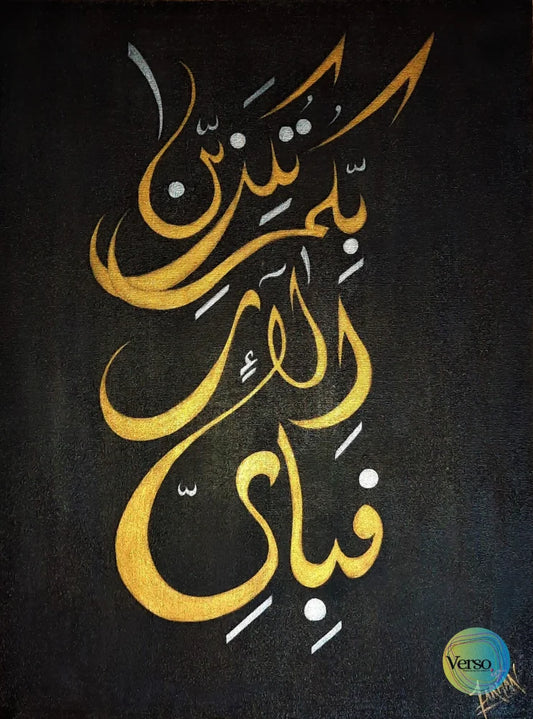 فَبِاَيِّ
اٰلَآءِ
رَبِّكُمَا
تُكَذِّبٰنِ
Verso